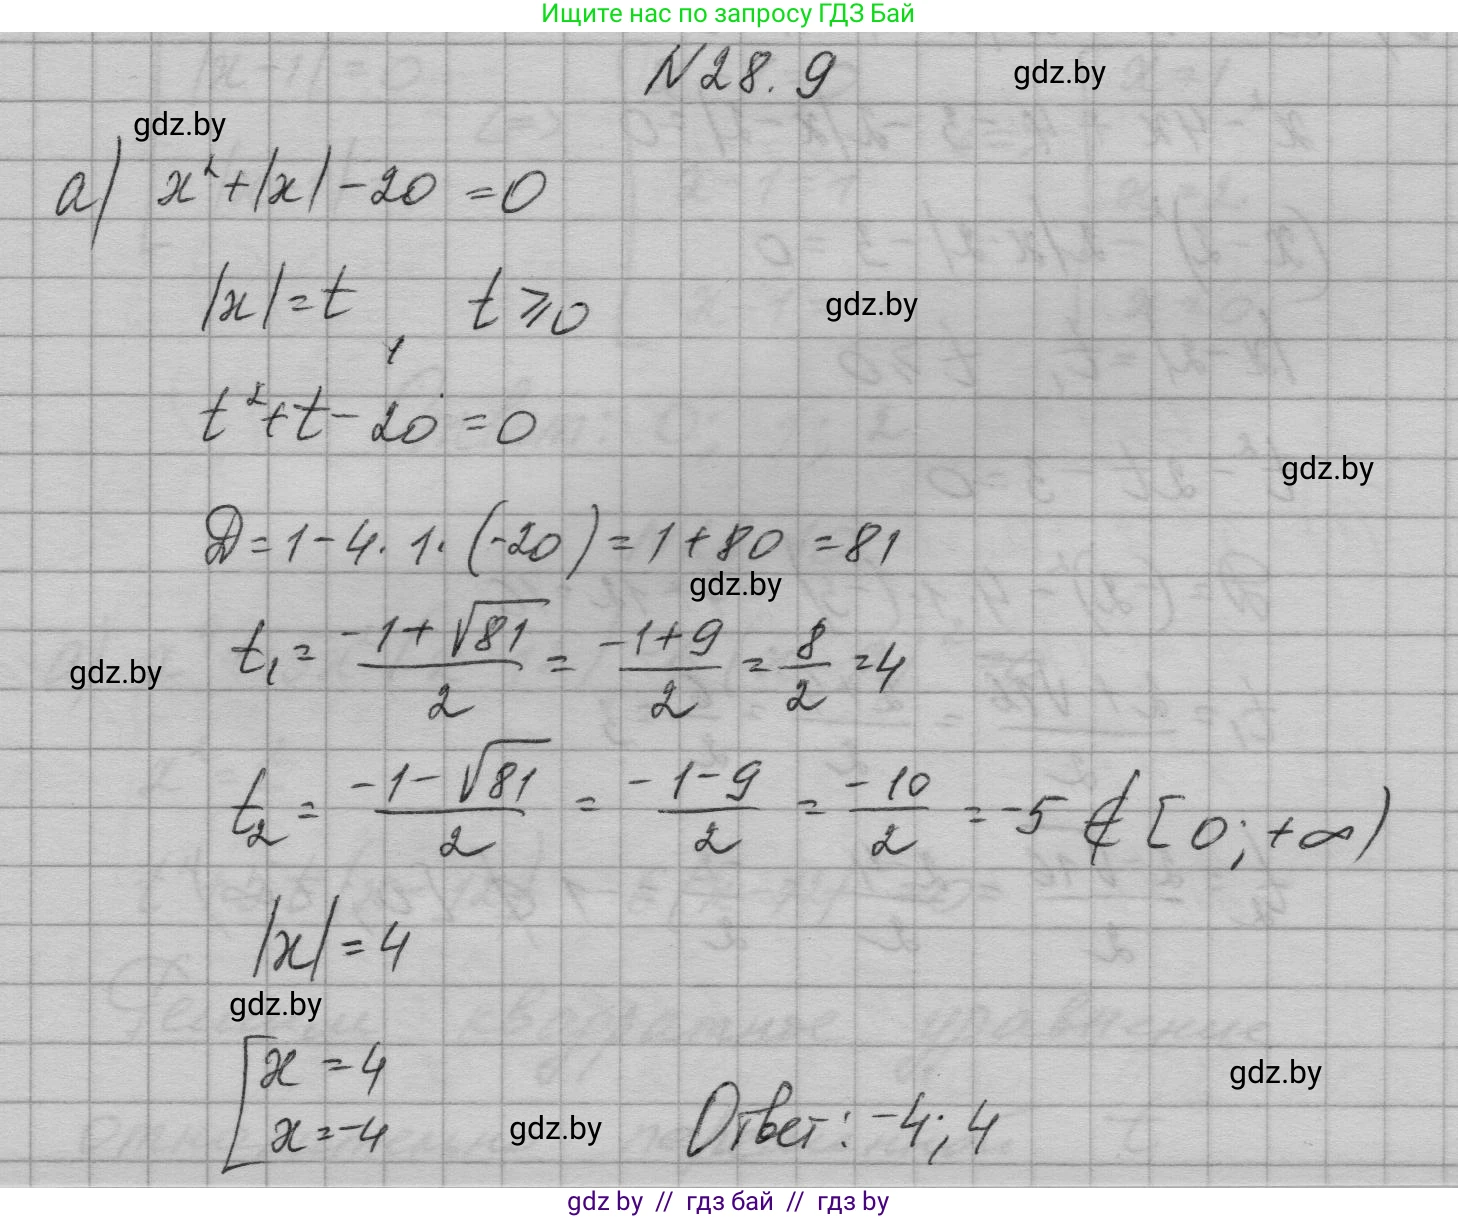 Ищите нас по запросу ГДЗ Бай
N28.9
gdz.by
gdz.by
а) x²+|x|-20=0
|x|=t, t⩾0
gdz.by
t²+t-20=0
gdz.by
D=1-4·1·(-20)=1+80=81
gdz.by
t₁=(-1+√81)/2=(-1+9)/2=8/2=4
gdz.by
t₂=(-1-√81)/2=(-1-9)/2=-10/2=-5∉[0;+∞)
|x|=4
gdz.by
[x=4
x=-4
gdz.by
gdz.by
Ответ: -4; 4
gdz by // гдз бай // gdz by